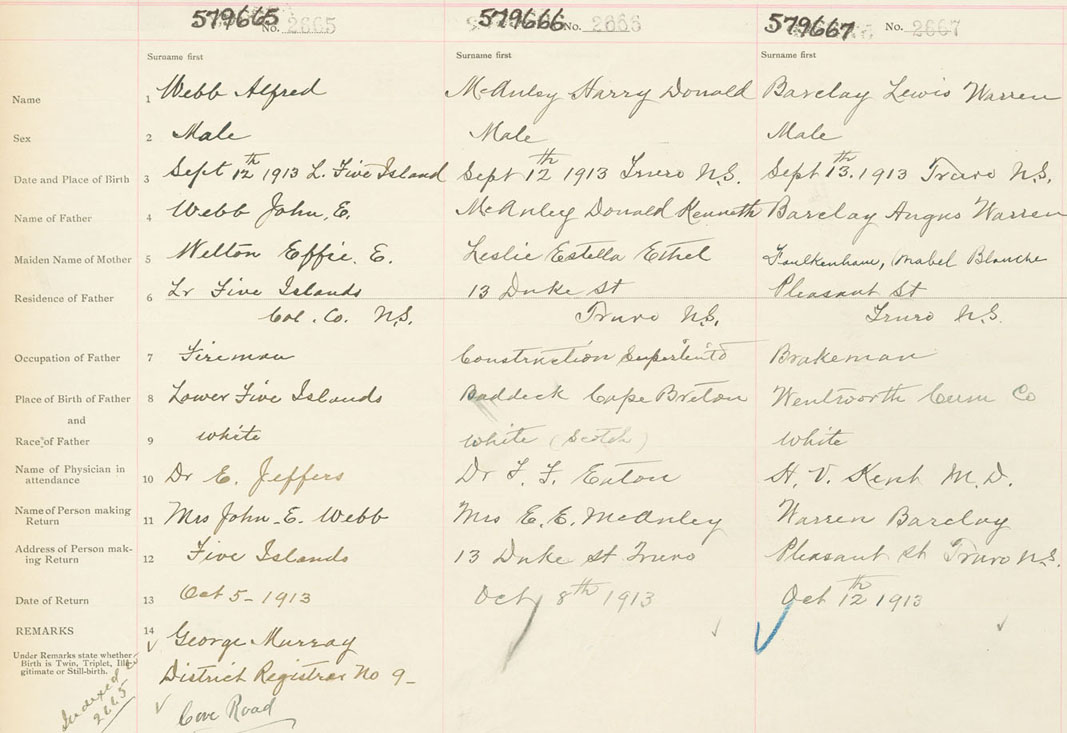 579665 No. 2665 579666 No. 2666 579667 No. 2667
Surname first Surname first Surname first
Name 1 Webb Alfred McAnley Harry Donald Barclay Lewis Warren
Sex 2 Male Male Male
Date and Place of Birth 3 Sept 12th 1913 L. Five Island Sept 12th 1913 Truro N.S. Sept 13th. 1913 Truro N.S.
Name of Father 4 Webb John. E. McAnley Donald Kenneth Barclay Angus Warren
Maiden Name of Mother 5 Welton Effie. E. Leslie Estella Ethel Faulkenham, Mabel Blanche
Residence of Father 6 Lr Five Islands 13 Duke St Pleasant St
Col. Co. N.S. Truro N.S. Truro N.S.
Occupation of Father 7 Fireman Construction Brakeman
Place of Birth of Father 8 Lower Five Islands Baddeck Cape Breton Wentworth Cum Co
and
Race of Father 9 white white (Scotch) white
Name of Physician in
attendance 10 Dr E. Jeffers Dr F. F. Eaton H. V. Kent M.D.
Name of Person making
Return 11 Mrs John. E. Webb Mrs E. E. McAnley Warren Barclay
Address of Person mak-
ing Return 12 Five Islands 13 Duke St Truro Pleasant St Truro N.S.
Date of Return 13 Oct 5 - 1913 Oct 8th 1913 Oct 12th 1913
REMARKS 14 George Murray
Under Remarks state whether
Birth is Twin, Triplet, Ille-
gitimate or Still-birth.
District Registrar No 9 -
Cove Road
Indexed
2665